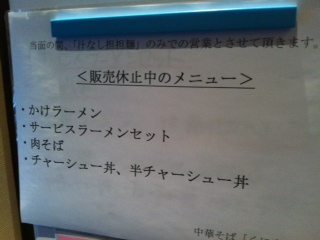 当面の間、「汁なし担担麺」のみでの営業とさせて頂きます。
＜販売休止中のメニュー＞
・かけラーメン
・サービスラーメンセット
・肉そば
・チャーシュー丼、半チャーシュー丼
中華そば